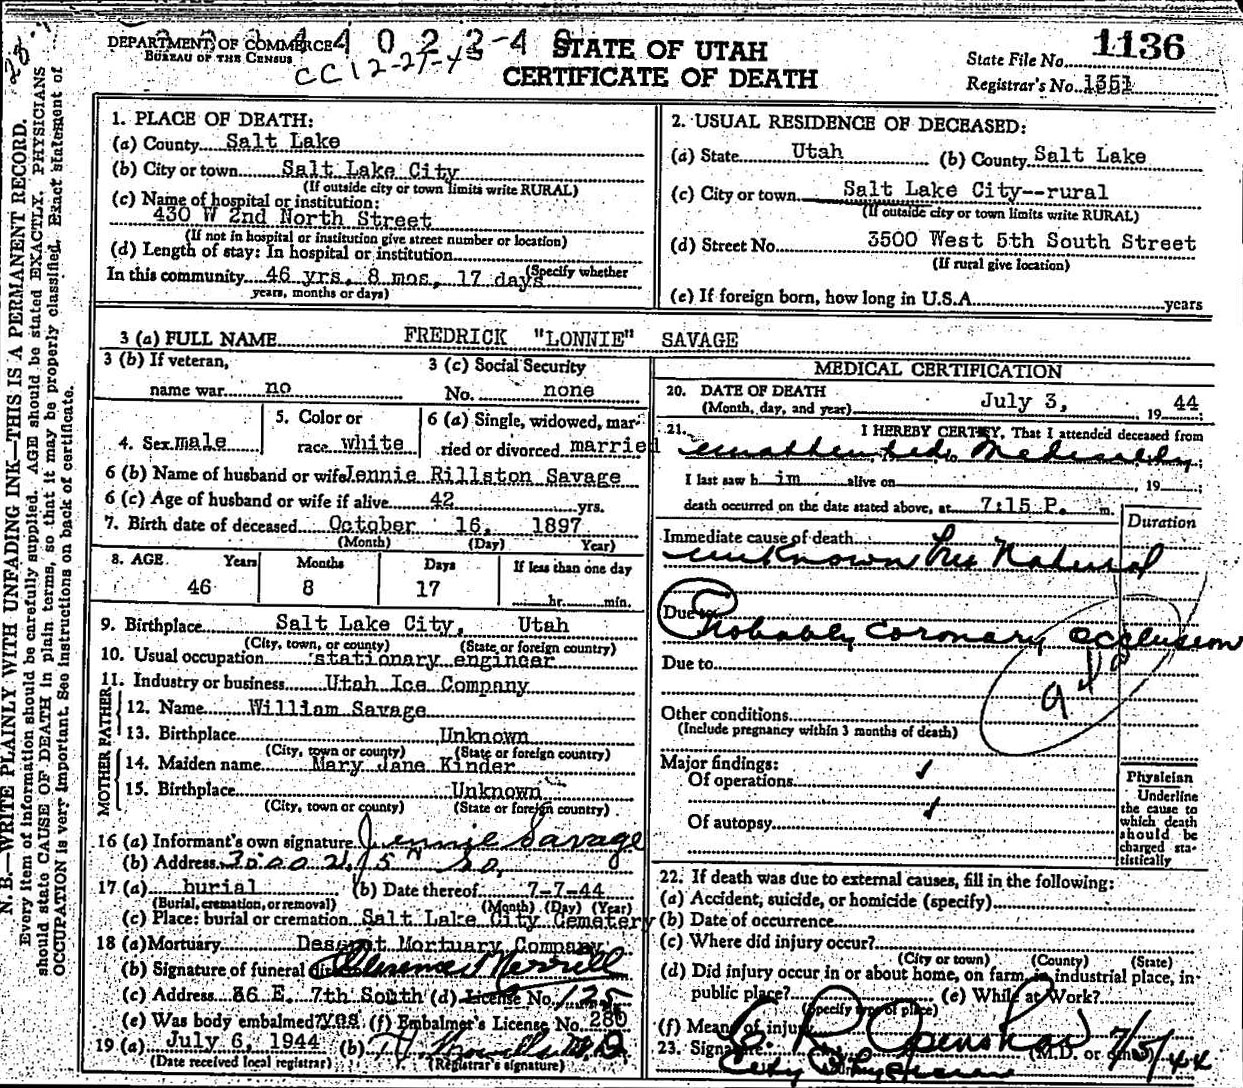 DEPARTMENT OF COMMERCE
BUREAU OF THE CENSUS
CC 12-27-43
STATE OF UTAH
CERTIFICATE OF DEATH
State File No. 1136
Registrar's No. 1351
N. B.—WRITE PLAINLY WITH UNFADING INK—THIS IS A PERMANENT RECORD.
Every item of information should be carefully supplied. AGE should be stated EXACTLY. PHYSICIANS
should state CAUSE OF DEATH in plain terms, so that it may be properly classified. Exact statement of
OCCUPATION is very important. See instructions on back of certificate.
1. PLACE OF DEATH:
(a) County Salt Lake
(b) City or town Salt Lake City
(If outside city or town limits write RURAL)
(c) Name of hospital or institution:
430 W 2nd North Street
(If not in hospital or institution give street number or location)
(d) Length of stay: In hospital or institution
In this community 46 yrs, 8 mos, 17 days (Specify whether
years, months or days)
2. USUAL RESIDENCE OF DECEASED:
(a) State Utah (b) County Salt Lake
(c) City or town Salt Lake City--rural
(If outside city or town limits write RURAL)
(d) Street No. 3500 West 5th South Street
(If rural give location)
(e) If foreign born, how long in U.S.A. years
3 (a) FULL NAME FREDRICK "LONNIE" SAVAGE
3 (b) If veteran,
name war no
3 (c) Social Security
No. none
4. Sex male
5. Color or
race white
6 (a) Single, widowed, mar-
ried or divorced married
6 (b) Name of husband or wife Jennie Rillston Savage
6 (c) Age of husband or wife if alive 42 yrs.
7. Birth date of deceased October 16, 1897
(Month) (Day) Year)
8. AGE Years Months Days If less than one day
46 8 17 hr. min.
9. Birthplace Salt Lake City, Utah
(City, town, or county) (State or foreign country)
10. Usual occupation stationary engineer
11. Industry or business Utah Ice Company
FATHER
12. Name William Savage
13. Birthplace Unknown
(City, town or county) (State or foreign country)
MOTHER
14. Maiden name Mary Jane Kinder
15. Birthplace Unknown
(City, town or county) (State or foreign country)
16 (a) Informant's own signature Jennie Savage
(b) Address
17 (a) burial (b) Date thereof 7-7-44
(Burial, cremation, or removal) (Month) (Day) (Year)
(c) Place: burial or cremation Salt Lake City Cemetery
18 (a) Mortuary Deseret Mortuary Company
(b) Signature of funeral Clarence Merrill
(c) Address 36 E. 7th South (d) License No. 125
(e) Was body embalmed? yes (f) Embalmer's License No. 280
19 (a) July 6, 1944 (b)
(Date received local registrar) (Registrar's signature)
MEDICAL CERTIFICATION
20. DATE OF DEATH
(Month, day, and year) July 3, 19 44
21. I HEREBY CERTIFY, That I attended deceased from
unattended Medically
I last saw h im alive on 19
death occurred on the date stated above, at 7:15 P. m.
Duration
Immediate cause of death
unknown but Natural
Due to
Probably coronary occlusion
Due to
Other conditions
(Include pregnancy within 3 months of death)
Major findings:
Of operations
Of autopsy
Physician
Underline
the cause to
which death
should be
charged sta-
tistically
22. If death was due to external causes, fill in the following:
(a) Accident, suicide, or homicide (specify)
(b) Date of occurrence
(c) Where did injury occur?
(City or town) (County) (State)
(d) Did injury occur in or about home, on farm, in industrial place, in
public place? (e) While at Work?
(Specify type of place)
(f) Means of injury
23. Signature C R Openshaw (M.D. or other) 7/5/44
City Physician